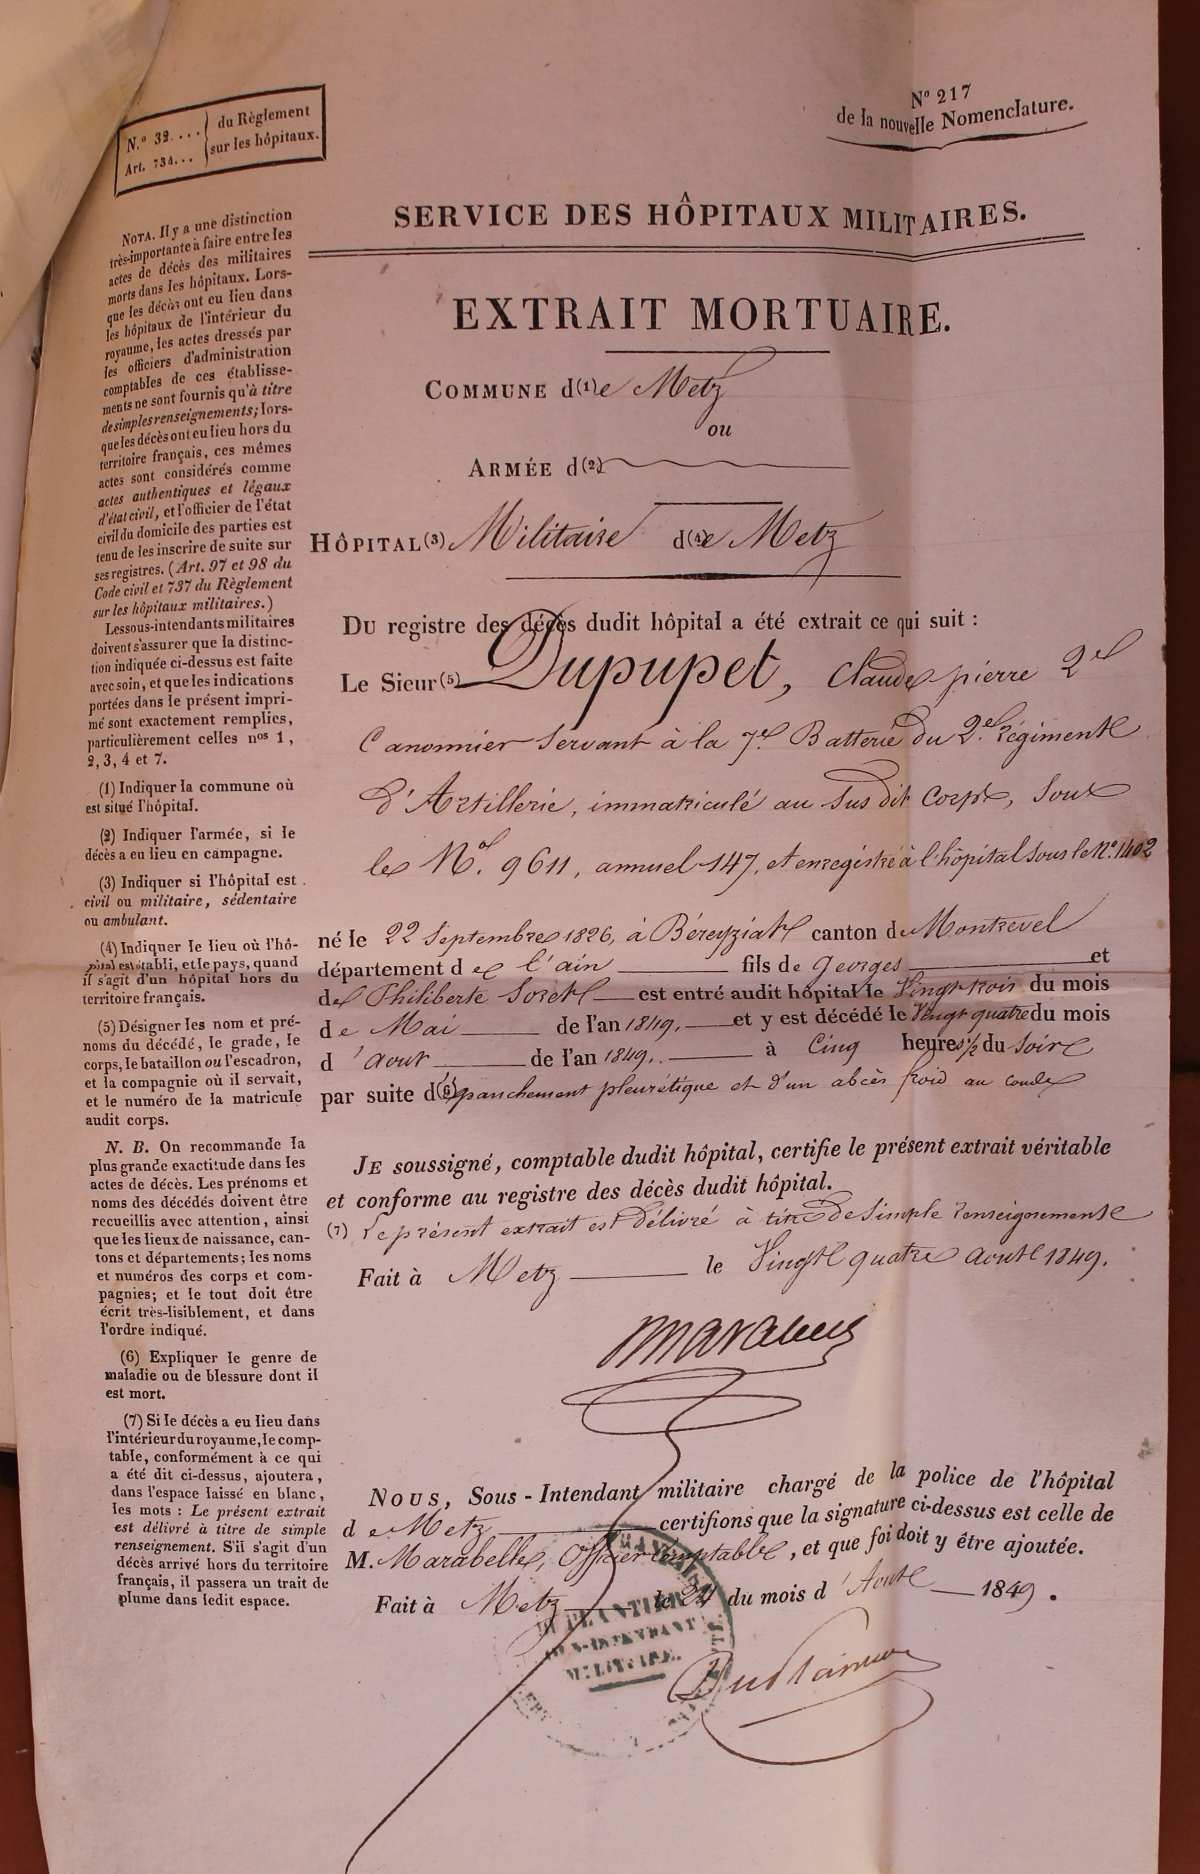 N.º 32....
Art. 734...
du Règlement
sur les hôpitaux.
Nº 217
de la nouvelle Nomenclature.
SERVICE DES HÔPITAUX MILITAIRES.
EXTRAIT MORTUAIRE.
COMMUNE d(1)e Metz
ou
ARMÉE d(2)
HÔPITAL (3) Militaire d(4)e Metz
DU registre des décès dudit hôpital a été extrait ce qui suit :
Le Sieur (5) Dupupet, Claude pierre 2e
Canonnier Servant à la 7e Batterie du 2e Régiment
d'Artillerie, immatriculé au Sus dit Corps, Sous
le No. 9611, annuel 147, et enregistré à l'hôpital sous le Nº 1402
né le 22 Septembre 1826, à Béreyziat canton de Montrevel
département de l'ain fils de Georges et
de Philiberte Soret est entré audit hôpital le Vingt trois du mois
de Mai de l'an 1849, et y est décédé le Vingt quatre du mois
d'Aout de l'an 1849. à Cinq heures 1/2 du Soir
par suite d(6)'épanchement pleurétique et d'un abcès froid au coude
JE soussigné, comptable dudit hôpital, certifie le présent extrait véritable
et conforme au registre des décès dudit hôpital.
(7) Le présent extrait est Délivré à titre de Simple renseignement
Fait à Metz le Vingt quatre Aout 1849.
Marabelle
NOUS, Sous-Intendant militaire chargé de la police de l'hôpital
de Metz certifions que la signature ci-dessus est celle de
M. Marabelle, Officier Comptable, et que foi doit y être ajoutée.
Fait à Metz le 24 du mois d'Aout 1849.
SOUS-INTENDANT
MILITAIRE.
NOTA. Il y a une distinction
très-importante à faire entre les
actes de décès des militaires
morts dans les hôpitaux. Lors-
que les décès ont eu lieu dans
les hôpitaux de l'intérieur du
royaume, les actes dressés par
les officiers d'administration
comptables de ces établisse-
ments ne sont fournis qu'à titre
de simples renseignements; lors-
que les décès ont eu lieu hors du
territoire français, ces mêmes
actes sont considérés comme
actes authentiques et légaux
d'état civil, et l'officier de l'état
civil du domicile des parties est
tenu de les inscrire de suite sur
ses registres. (Art. 97 et 98 du
Code civil et 737 du Règlement
sur les hôpitaux militaires.)
Les sous-intendants militaires
doivent s'assurer que la distinc-
tion indiquée ci-dessus est faite
avec soin, et que les indications
portées dans le présent impri-
mé sont exactement remplies,
particulièrement celles nos 1,
2, 3, 4 et 7.
(1) Indiquer la commune où
est situé l'hôpital.
(2) Indiquer l'armée, si le
décès a eu lieu en campagne.
(3) Indiquer si l'hôpital est
civil ou militaire, sédentaire
ou ambulant.
(4) Indiquer le lieu où l'hô-
pital est établi, et le pays, quand
il s'agit d'un hôpital hors du
territoire français.
(5) Désigner les nom et pré-
noms du décédé, le grade, le
corps, le bataillon ou l'escadron,
et la compagnie où il servait,
et le numéro de la matricule
audit corps.
N. B. On recommande la
plus grande exactitude dans les
actes de décès. Les prénoms et
noms des décédés doivent être
recueillis avec attention, ainsi
que les lieux de naissance, can-
tons et départements; les noms
et numéros des corps et com-
pagnies; et le tout doit être
écrit très-lisiblement, et dans
l'ordre indiqué.
(6) Expliquer le genre de
maladie ou de blessure dont il
est mort.
(7) Si le décès a eu lieu dans
l'intérieur du royaume, le comp-
table, conformément à ce qui
a été dit ci-dessus, ajoutera,
dans l'espace laissé en blanc,
les mots : Le présent extrait
est délivré à titre de simple
renseignement. S'il s'agit d'un
décès arrivé hors du territoire
français, il passera un trait de
plume dans ledit espace.